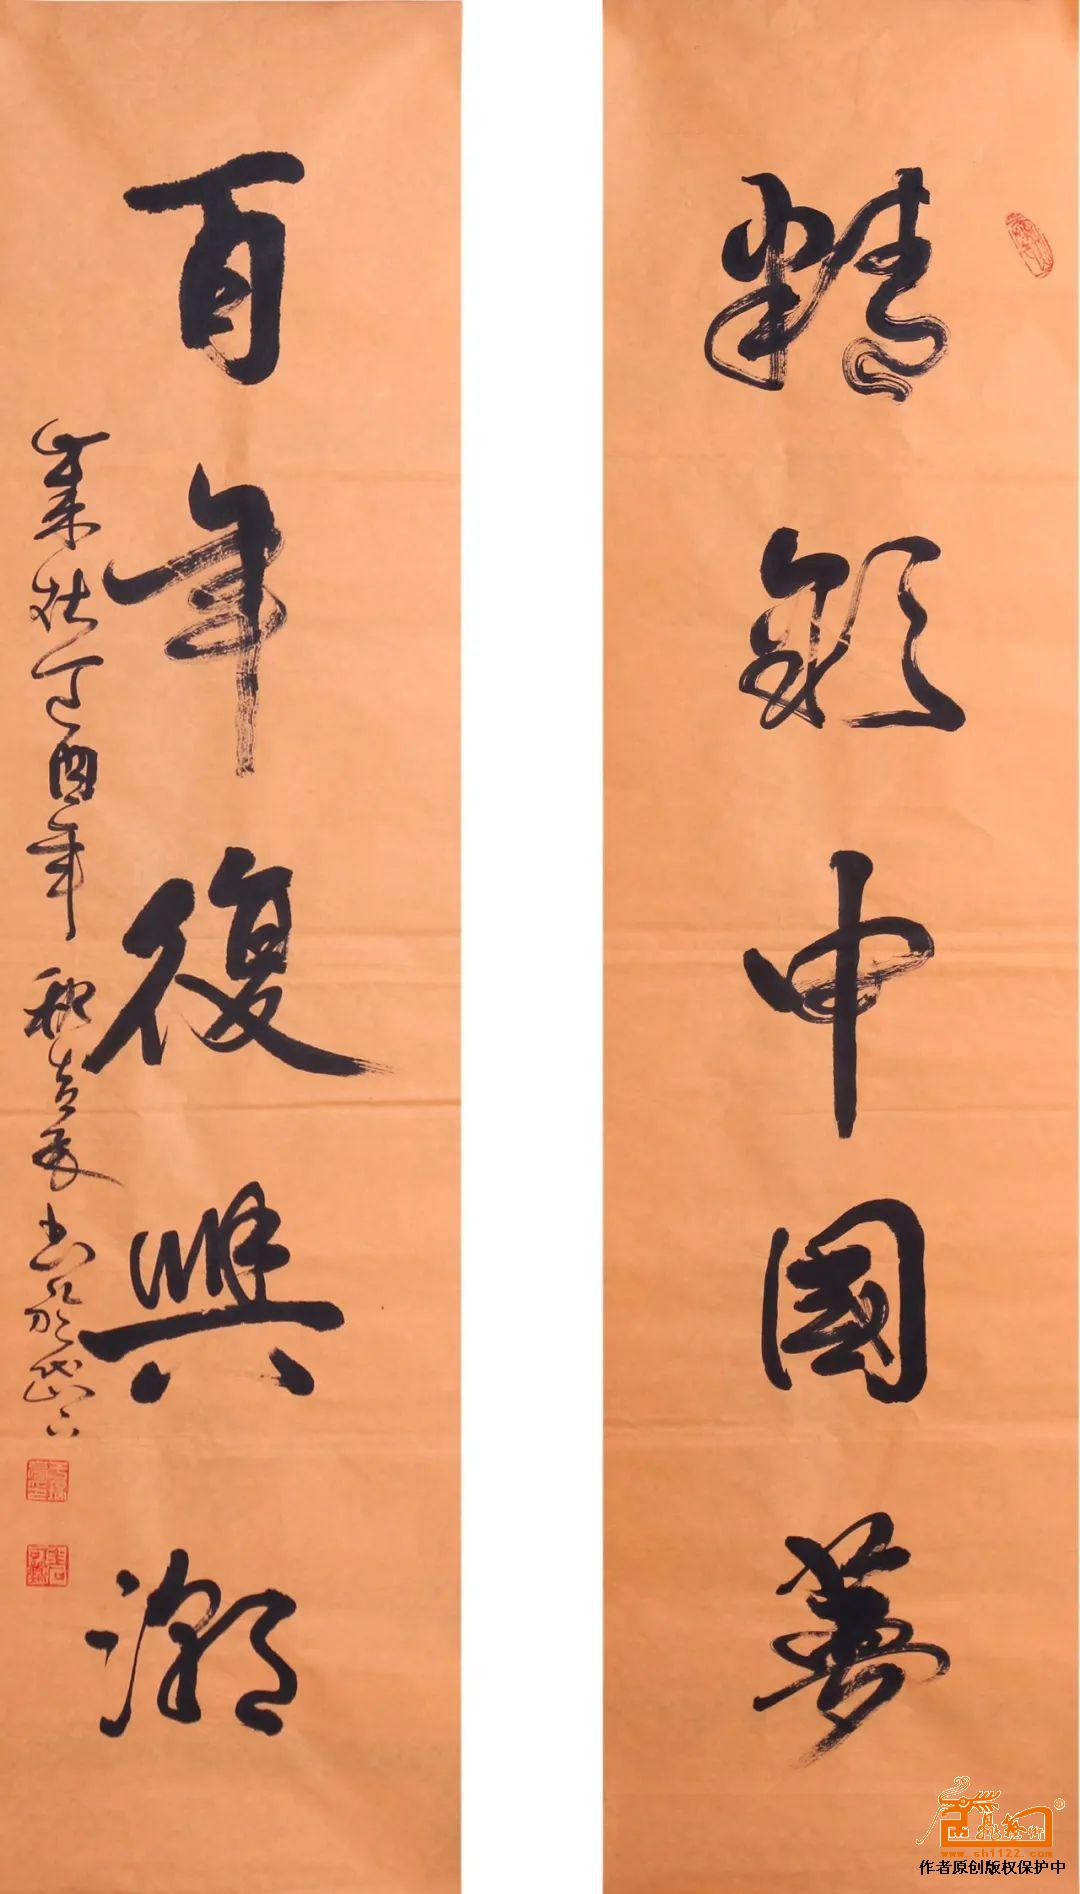 精彩中國夢
百年復興潮
歲在丁酉年秋吉辰書於岱下
www.sh1122.com
作者原创版权保护中